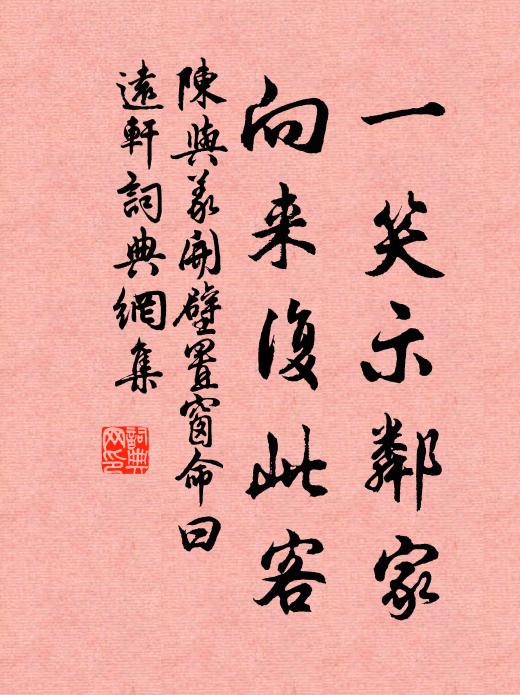 一笑示鄰家
向来復此客
陳與義開壁置窗命曰
遠軒詞典網集
詞典
网印